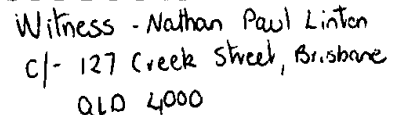 Witness - Nathan Paul Linton
c/- 127 Creek Street, Brisbane
QLD 4000